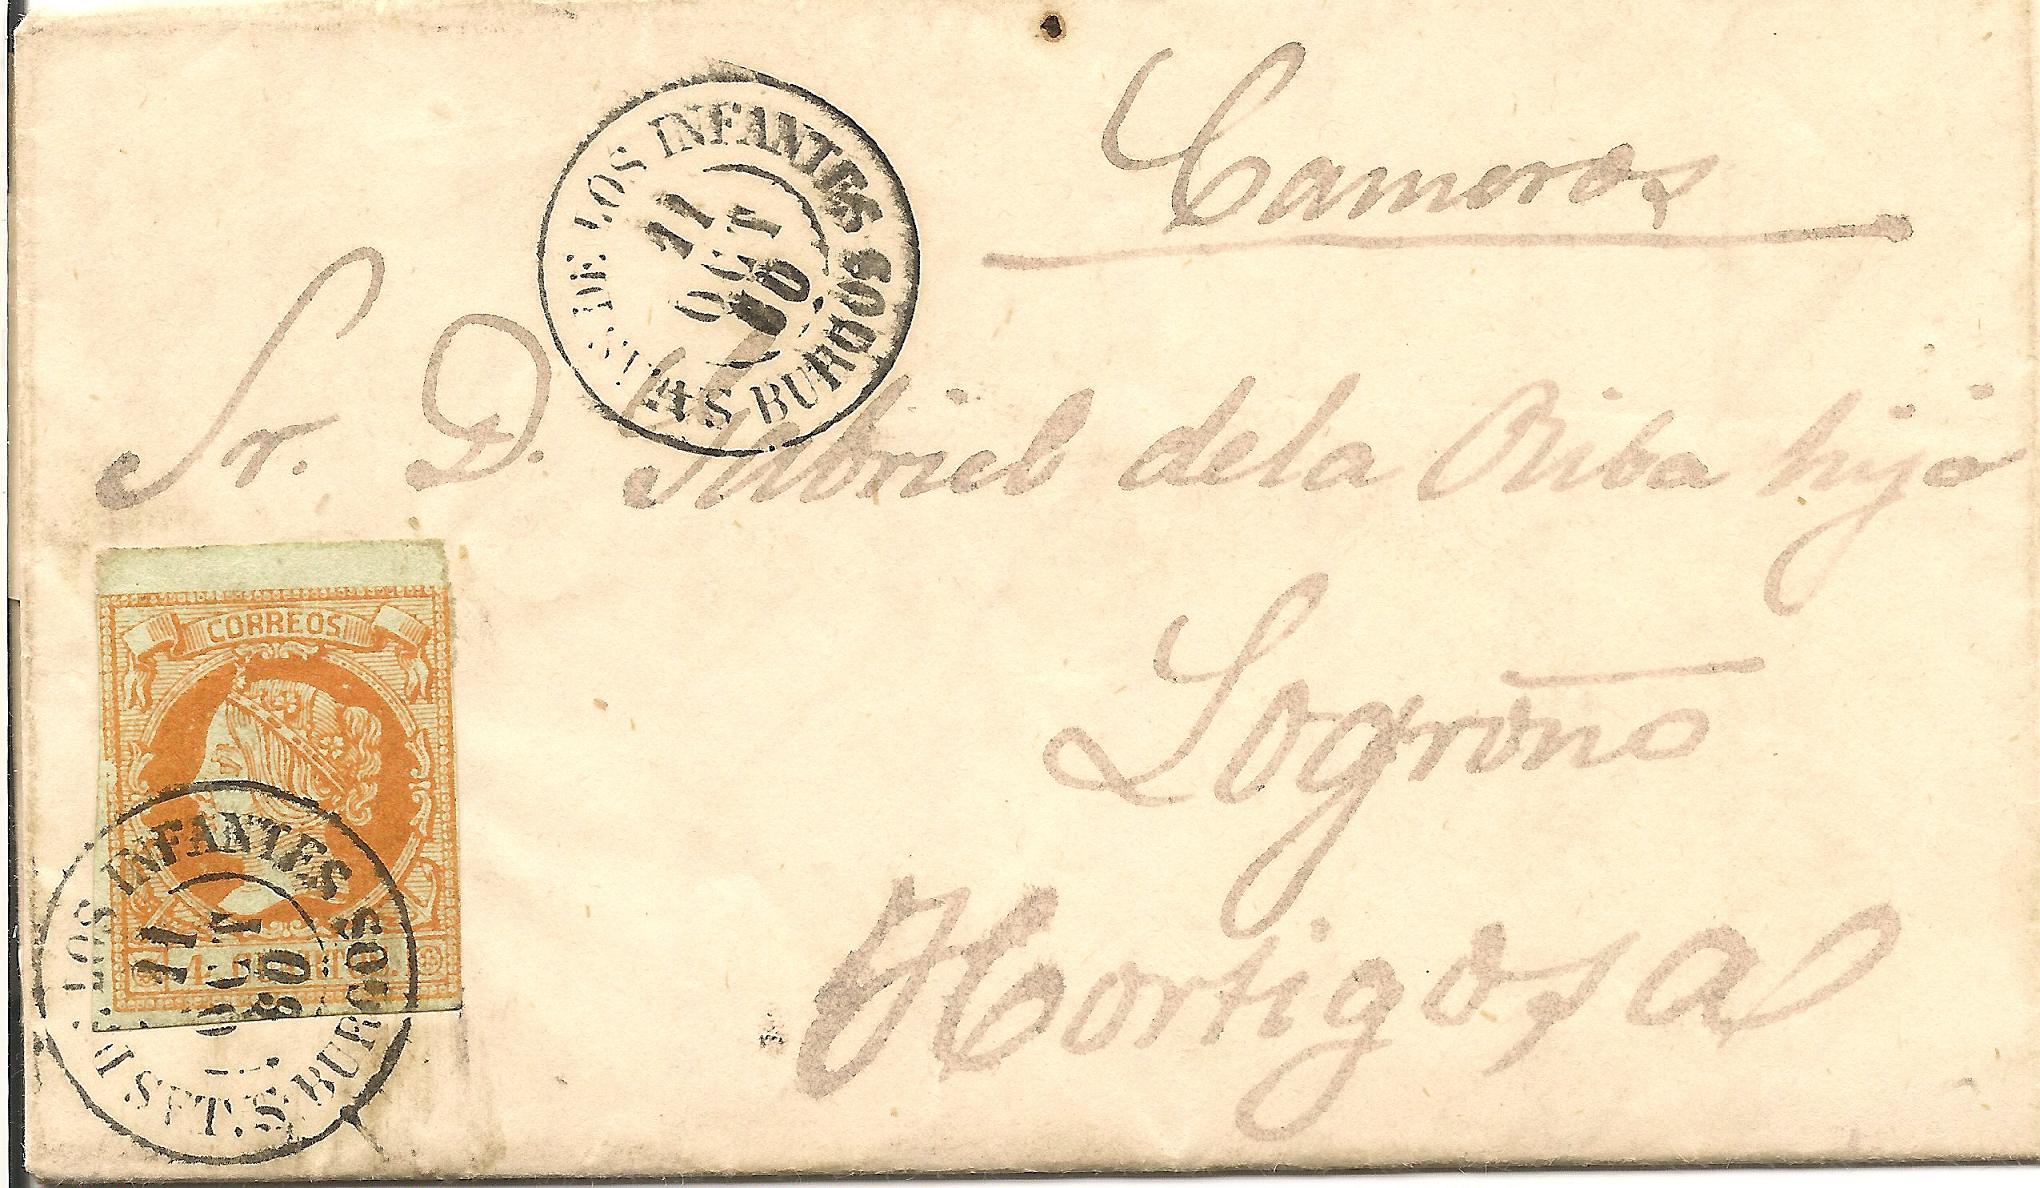 Cameros
S. DE LOS INFANTES BURGOS
11
OCT
60
Sr. D. Gabriel de la Riba hijo
CORREOS
Logroño
Hortigosa
LOS INFANTES BURGOS
11
OCT
60